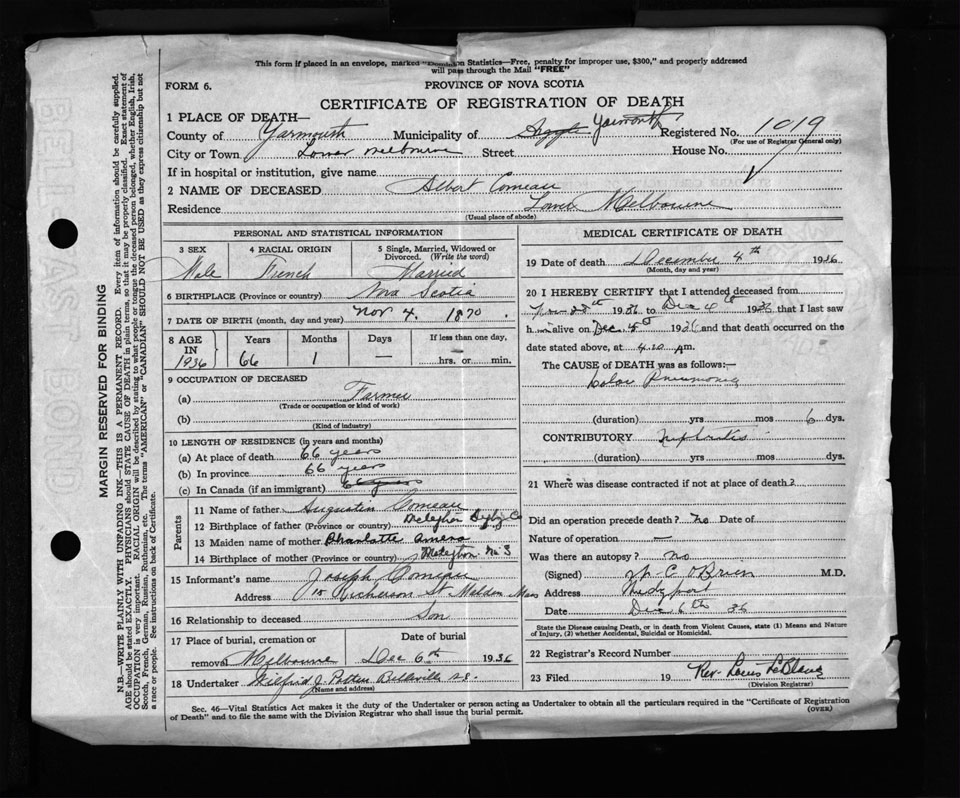 This form if placed in an envelope, marked "Dominion Statistics—Free, penalty for improper use, $300," and properly addressed
will pass through the Mail "FREE"
FORM 6.
PROVINCE OF NOVA SCOTIA
CERTIFICATE OF REGISTRATION OF DEATH
1 PLACE OF DEATH—
County of Yarmouth Municipality of Argyle Yarmouth Registered No. 1019
(For use of Registrar General only)
City or Town Lower Melbourne Street House No.
If in hospital or institution, give name
2 NAME OF DECEASED Albert Comeau
Residence Lower Melbourne
(Usual place of abode)
PERSONAL AND STATISTICAL INFORMATION
3 SEX 4 RACIAL ORIGIN 5 Single, Married, Widowed or
Divorced. (Write the word)
Male French Married
6 BIRTHPLACE (Province or country) Nova Scotia
7 DATE OF BIRTH (month, day and year) Nov 4. 1870.
8 AGE IN 1936 Years 66 Months 1 Days — If less than one day,
hrs. or min.
9 OCCUPATION OF DECEASED
(a) Farmer
(Trade or occupation or kind of work)
(b)
(Kind of industry)
10 LENGTH OF RESIDENCE (in years and months)
(a) At place of death 66 years
(b) In province 66 years
(c) In Canada (if an immigrant) 66 years
Parents
11 Name of father Augustin Comeau
12 Birthplace of father (Province or country) Meteghan Digby Co
13 Maiden name of mother Charlotte Amero
14 Birthplace of mother (Province or country) Meteghan N.S
15 Informant's name Joseph Comeau
Address 15 Nickerson St Malden Mass
16 Relationship to deceased Son
17 Place of burial, cremation or Date of burial
removal Melbourne Dec 6th 1936
18 Undertaker Wilfrid J. Pottier Belleville N.S.
(Name and address)
MEDICAL CERTIFICATE OF DEATH
19 Date of death December 4th 1936
(Month, day and year)
20 I HEREBY CERTIFY that I attended deceased from
Nov 28th 1936 to Dec 4th 1936 that I last saw
him alive on Dec. 1936 and that death occurred on the
date stated above, at 4.20 AM.
The CAUSE of DEATH was as follows:—
Lobar Pneumonia
(duration) yrs mos 6 dys.
CONTRIBUTORY Nephritis
(duration) yrs. mos. dys.
21 Where was disease contracted if not at place of death?
Did an operation precede death? no Date of
Nature of operation —
Was there an autopsy? no
(Signed) W. C. O'Brien M.D.
Address Wedgeport
Date Dec 6th 36
State the Disease causing Death, or in death from Violent Causes, state (1) Means and Nature
of Injury, (2) whether Accidental, Suicidal or Homicidal.
22 Registrar's Record Number
23 Filed 19 Rev. Louis LeBlanc
(Division Registrar)
Sec. 46—Vital Statistics Act makes it the duty of the Undertaker or person acting as Undertaker to obtain all the particulars required in the "Certificate of Registration
of Death" and to file the same with the Division Registrar who shall issue the burial permit. (OVER)
MARGIN RESERVED FOR BINDING
N.B.—WRITE PLAINLY WITH UNFADING INK—THIS IS A PERMANENT RECORD. Every item of information should be carefully supplied.
AGE should be stated EXACTLY. PHYSICIANS should STATE CAUSE OF DEATH in plain terms, so that it may be properly classified. Exact statement of
OCCUPATION is very important. RACIAL ORIGIN will be described by stating to what people or tongue the deceased person belonged, whether English, Irish,
Scotch, French, German, Russian, Ruthenian, etc. The terms "AMERICAN" or "CANADIAN" SHOULD NOT BE USED as they express citizenship but not
a race or people. See instructions on back of Certificate.